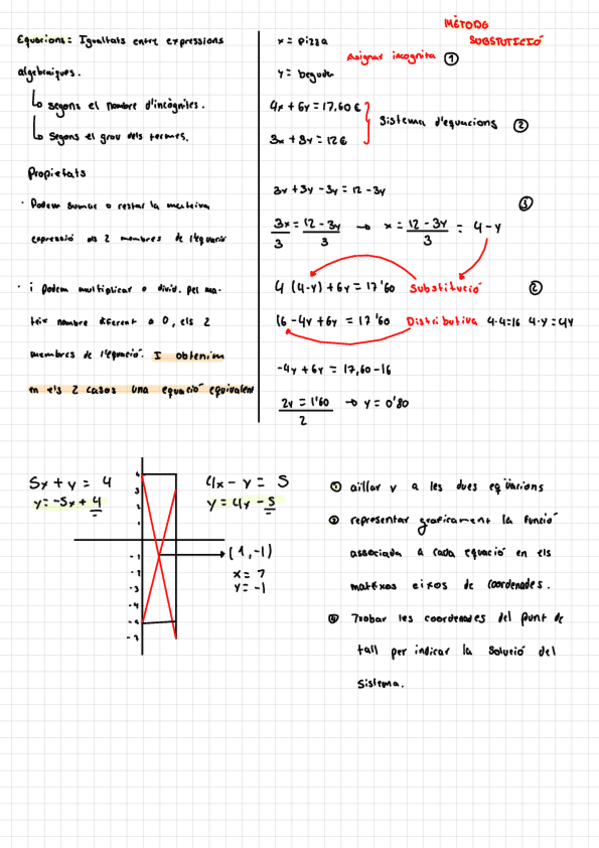 Equacions: Igualtats entre expressions
algebraiques.
segons el nombre d'incògnites.
segons el grau dels termes.
Propietats
· Podem sumar o restar la mateixa
expressió als 2 membres de l'equació
· i podem multiplicar o divid. pel ma-
teix nombre diferent a 0, els 2
membres de l'equació. I obtenim
en els 2 casos una equació equivalent
MÉTODE
SUBSTUTICIÓ
x = pizza
Asignar incognita ①
y = beguda
4x + 6y = 17,60 €
Sistema d'equacions ②
3x + 3y = 12 €
3x + 3y - 3y = 12 - 3y
③
3x/3 = 12 - 3y/3 → x = 12 - 3y/3 = 4 - y
4 (4-y) + 6y = 17'60 Substitució ②
16 - 4y + 6y = 17'60 Distributiva 4·4=16 4·y=4y
-4y + 6y = 17,60 - 16
2y = 1'60/2 → y = 0'80
5x + y = 4
y = -5x + 4
4x - y = 5
y = 4x - 5
4
3
2
1
-1
-2
-3
-4
(1,-1)
y = -1
① aïllar y a les dues eqüacions
② representar graficament la funció
associada a cada equació en els
mateixos eixos de coordenades.
Trobar les coordenades del punt de
tall per indicar la solució del
sistema.